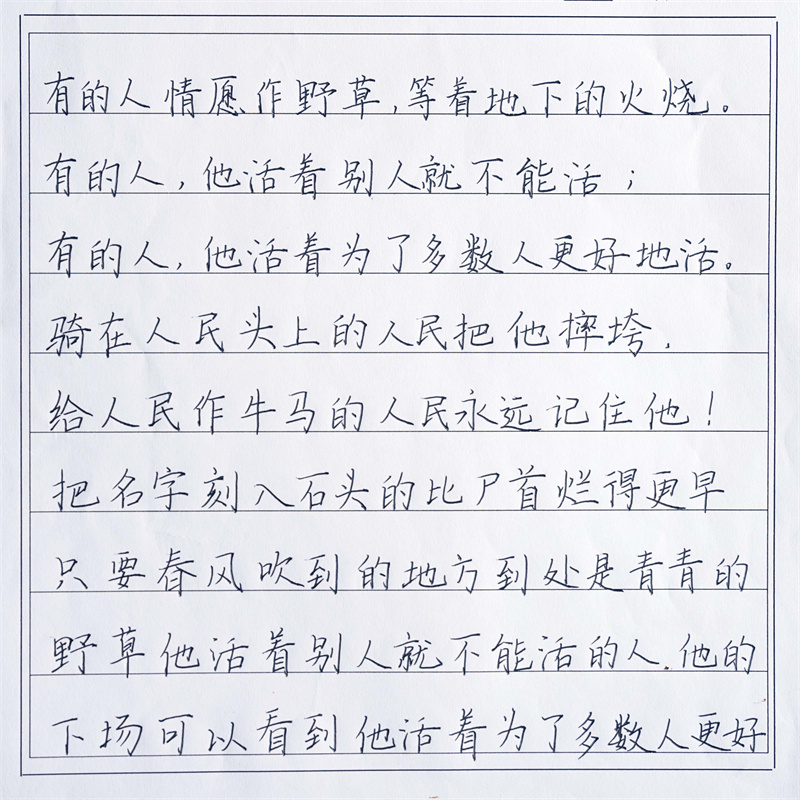 有的人情愿作野草,等着地下的火烧。
有的人,他活着别人就不能活;
有的人,他活着为了多数人更好地活。
骑在人民头上的人民把他摔垮,
给人民作牛马的人民永远记住他!
把名字刻入石头的比尸首烂得更早
只要春风吹到的地方到处是青青的
野草他活着别人就不能活的人.他的
下场可以看到他活着为了多数人更好